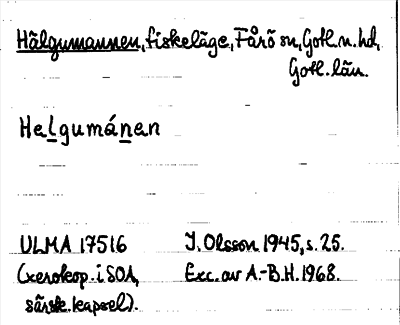 Hälgumannen, fiskeläge, Fårö sn, Gotl. n. hd,
Gotl. län.
Helgumánen
ULMA 17516 I. Olsson 1945, s. 25.
(xerokop. i SOA, Exc. av A.-B.H. 1968.
särsk. kapsel).